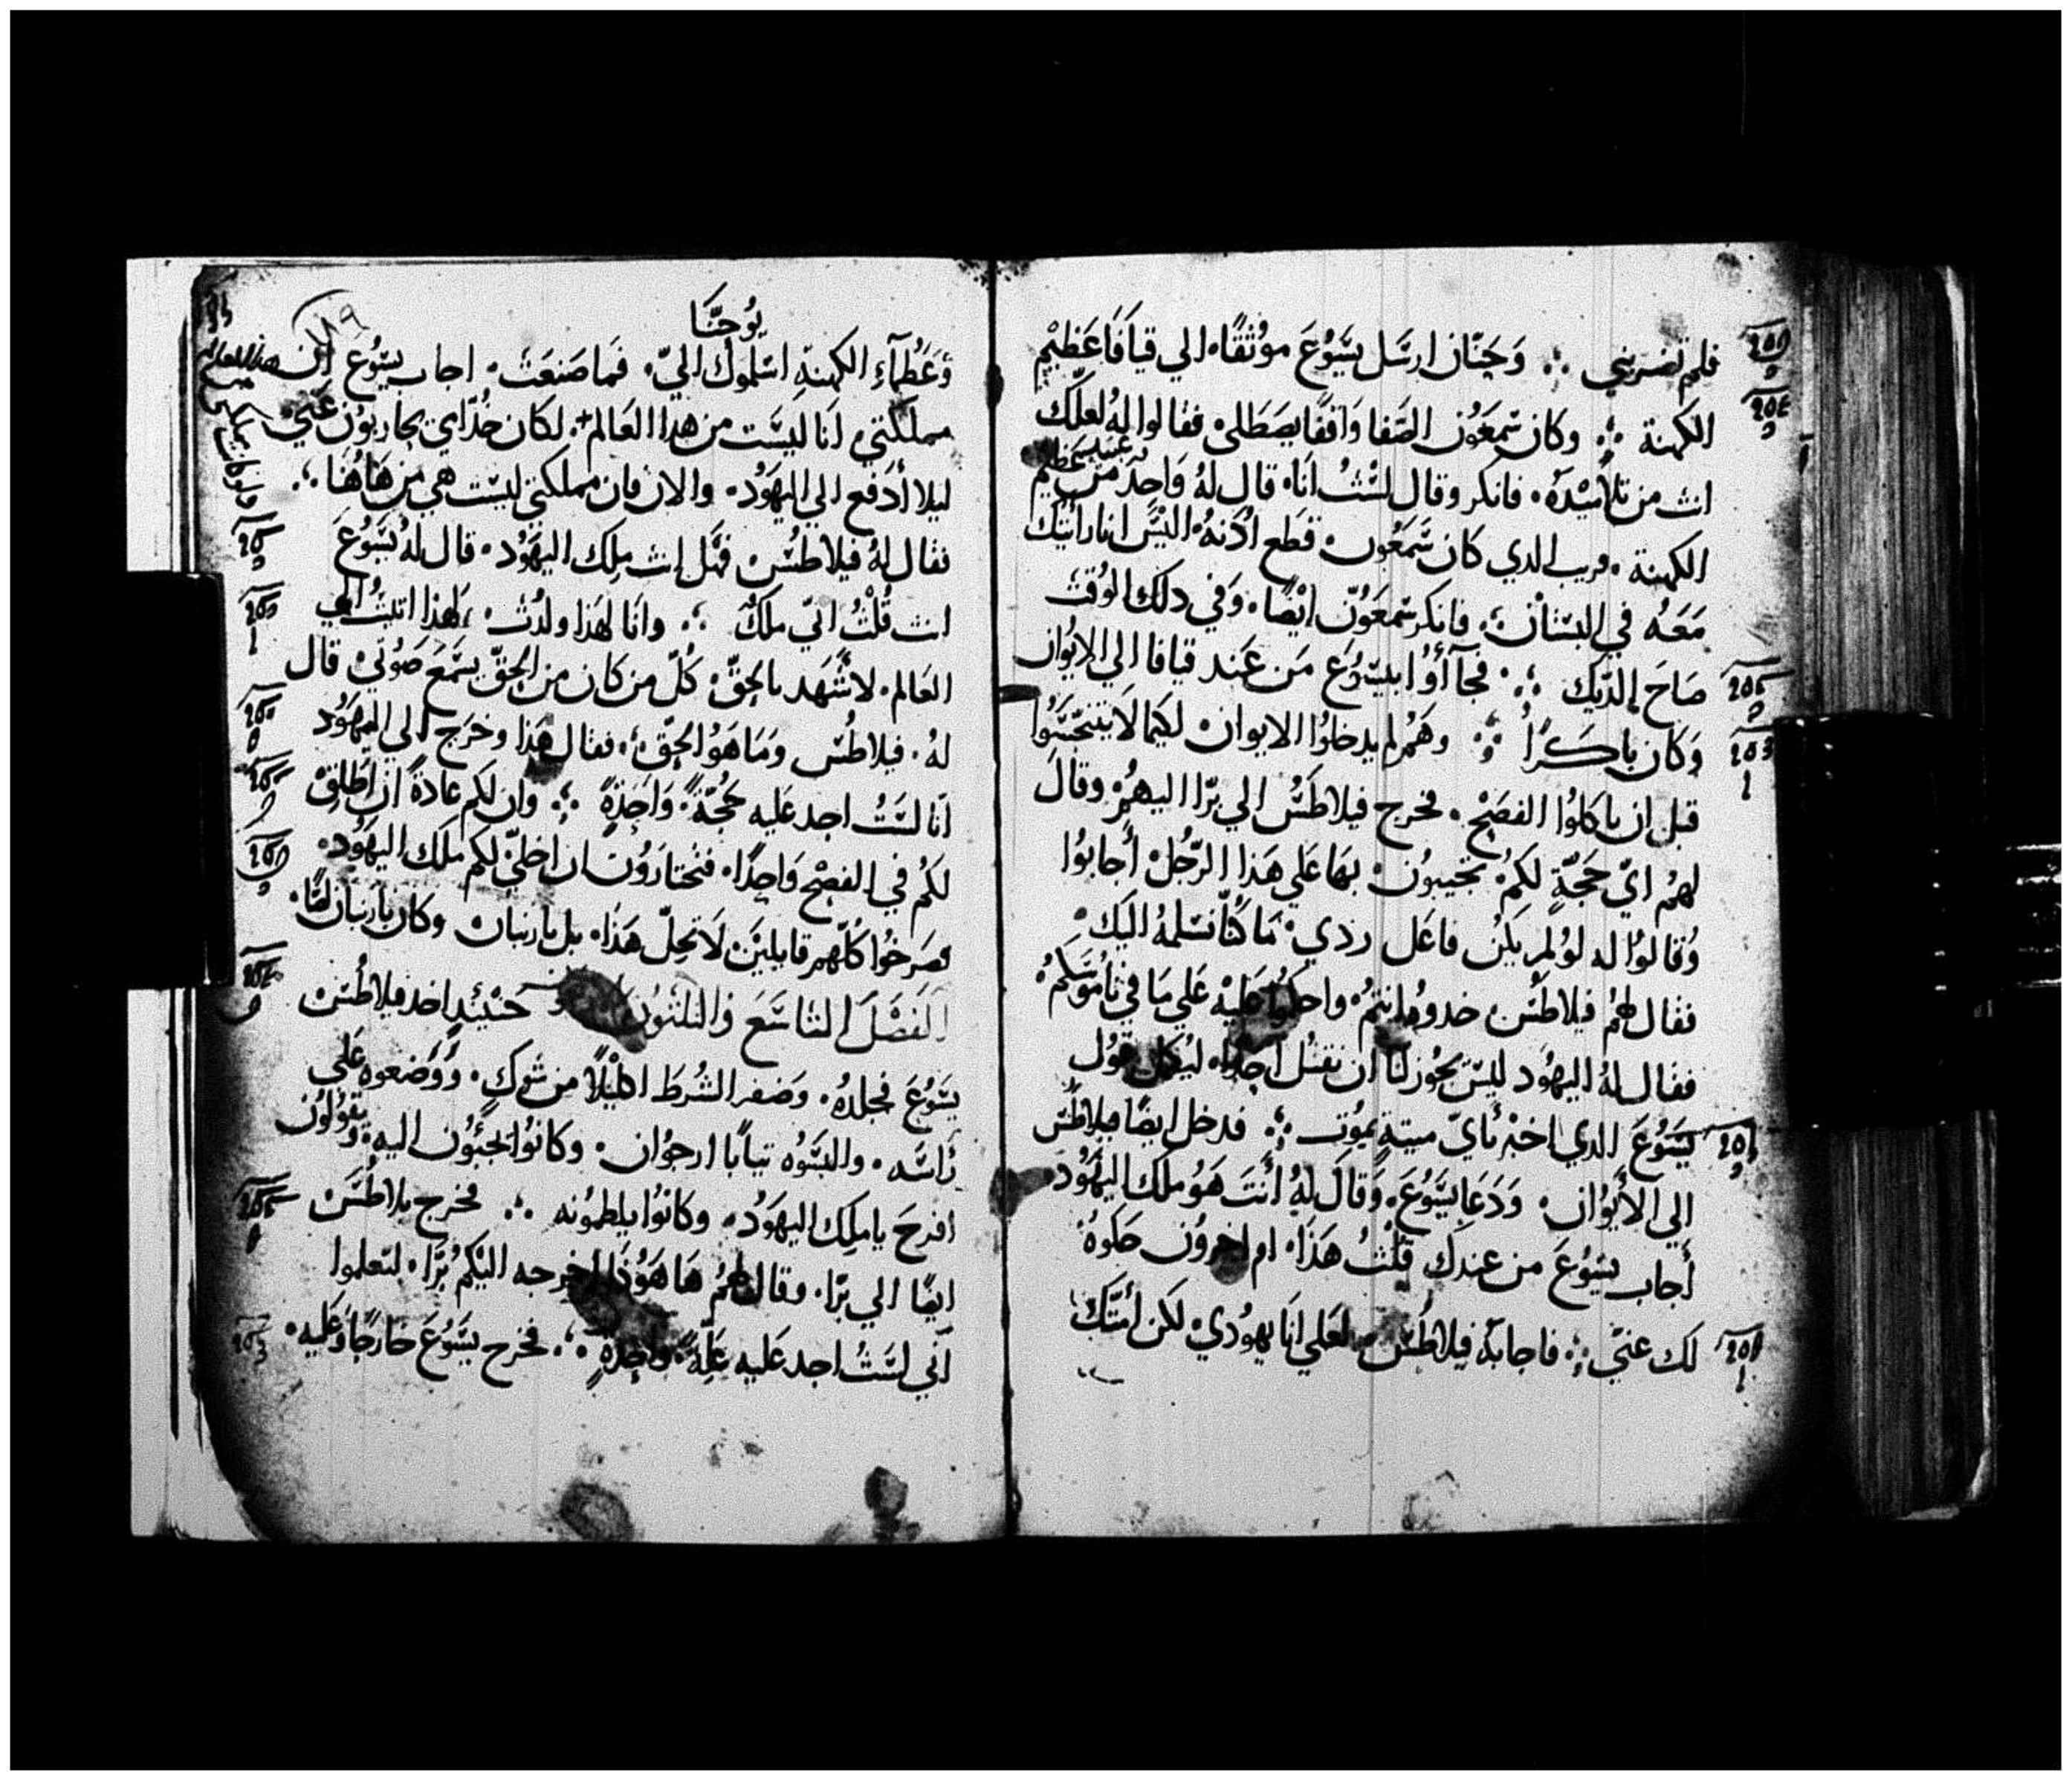 فلم تضربني ؞ وَحَنّان ارسَل يَسُوُعَ موُثقًا الي قيافَا عَظيْم
الكهنة ؞ وكان سَمعَوُن الصَفا وَاقفًا يصَطَلى فقالوا لهُ لعلّك
انت من تلاميْدهُ فانكر وقال لسْتُ انَا قال لهُ وَاحِدَ من عبيد عَظيم
الكهنة قريب الدي كان سَمعَوُن قطَع ادُنهُ اليْسَ انا رأيتك
مَعَهُ في البستانْ ؞ فانكر سَمعَوُنّ ايْضًا وَفي دلك الوُقتْ
صَاحَ الدّيك ؞ فجاَأوُا بيَسُوُعَ مَن عَند قيافا الي الايوُان
وَكان باكرًا ؞ وهَمُ لم يدخلوُا الايوان لكيما لَا يتنجّسَوُا
قبل ان ياكلوُا الفصَحْ فخرج فيلاطَسُ الي برّا اليهمُ وقال
لهمُ ايّ حَجّةٍ لكم تجيبوُن بهَا عَلي هَذا الرّجُل أَجابوُا
وُقالوُا له لوُ لم يكَن فاعَل رذي مَا كُنّا نسَلمهُ اليَك
فقال لهُم فيلاطُسَ خدوهُ انتمُ واحكمُوا عَليْه عَلي مَا في نامُوسَكمُ
فقال لهُ اليهُود ليْسَ يجُوز لنا ان نقتُل احَدًا ليُكمل قوُل
يَسَوُعَ الدي اخبر بأيّ ميتةٍ يموُت ؞ فدخل ايضًا فيلاطُس
الي الأَيوُان وَدَعَا يسَوُعَ وَقالَ لهُ أَنتَ هَوُ ملَك اليَهُود
أَجاب يسَوُعَ من عندك قلْتُ هَذَا ام اخروُن حَكوهُ
لك عنيّ ؞ فاجابهُ فيلاطُسْ لعَلي انَا يهوُدي لكن أمّتَك
يُوحَنّا
١١٩
وَعَظُمآءِ الكهنةِ اسَلموك اليّ فَما صَنعَتْ اجاب يسَوُع ان
مملكتي انَا ليسَت من هدا العَالم لكَان خُدّامي يحاربوُن عَني
ليلا أدَفع الي اليهَوُد والان فان مملكتي ليسَت هي من هَاهُنا ؞
فقال لهُ فيلاطسُ فهَل انت مَلِك اليهَوُد قال لهُ يَسَوُعَ
انت قُلْتُ انيّ مَلكٌ ؞ وانَا لهَذا ولدُت وَلهَذا اتيْتُ الي
العَالم لاشَهَد بالحَقّ كُلّ من كان من الحَقّ يسَمَع صَوُتي قال
لهُ فيلاطُسَ وَمَا هَوُ الحَقّ ؞ فقال هَذا وخرَج الي اليَهُود
انَا لسَتُ اجد عَليه حُجّةً وَاحَدةً ؞ وان لكم عَادةً ان اطَلق
لكُم في الفصْح وَاحِدًا فتختارَوُن ان اخليّ لكم ملك اليَهُود
فصَرخُوا كُلّهم قايلينَ لَا تحِلّ هَذا بل بارنبان وكان بارنبان لصًّا
الفَصْلَ التاسَعَ والثلثوُن حَنْيَئدٍ اخد فيلاطُسَ
يَسَوُعَ فجلدهُ وَضفر الشُرَطَ اكليلًا من شوك وَوَضعوه عَلي
رَاسَه والبسَوُه ثيابًا ارجوُان وكانوُا يجئوُن اليه وَيقوُلوُن
افرحَ يا ملِك اليهَوُد وكانوُا يلطموُنه ؞ فخرج فيلاطُسَ
ايضًا الي برّا وقال لهمُ هَا هَوُذَا اخرجه اليكمُ برّا لتَعلموا
أنّي لسَتُ اجد عَليه عَلّةً واحِدةٍ ؞ فخرج يسَوُعَ خارجًا وَعَليه